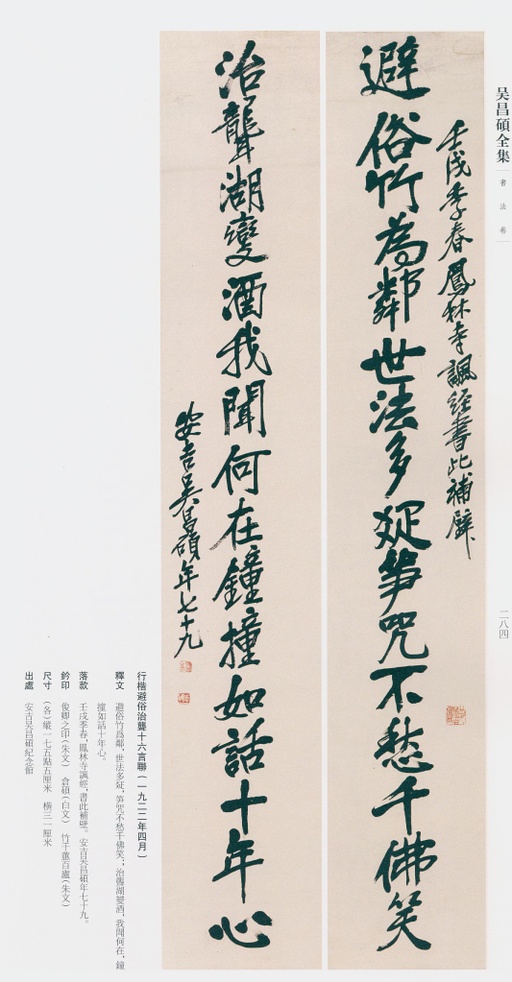 吴昌碩全集
書法卷
二八四
壬戌季春鳳林寺諷經書此補壁
避俗竹為鄰世法多娗笋咒不愁千佛笑
治聾湖變酒我聞何在鐘撞如話十年心
安吉吴昌碩年七十九
行楷避俗治聾十六言聯(一九二二年四月)
釋文 避俗竹爲鄰,世法多娗,笋咒不愁千佛笑;治聾湖變酒,我聞何在,鐘
撞如話十年心。
落款 壬戌季春,鳳林寺諷經,書此補壁。安吉吴昌碩年七十九。
鈐印 俊卿之印(朱文) 倉碩(白文) 竹千蕉百廬(朱文)
尺寸 (各)縱一七五點五厘米 橫三一厘米
出處 安吉吴昌碩紀念館